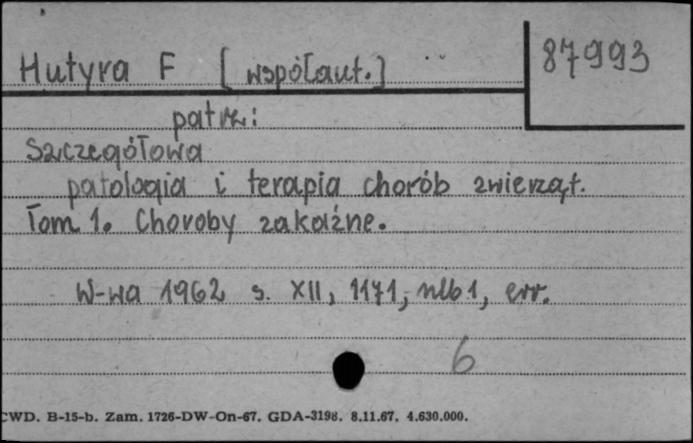 Hutyra F [współaut.]
87993
patrz:
Szczegółowa
patologia i terapia chorób zwierząt.
Tom 1. Choroby zakaźne.
W-wa 1962 s. XII, 1171, nlb 1, err.
6
CWD. B-15-b. Zam. 1726-DW-On-67. GDA-3198. 8.11.67. 4.630.000.